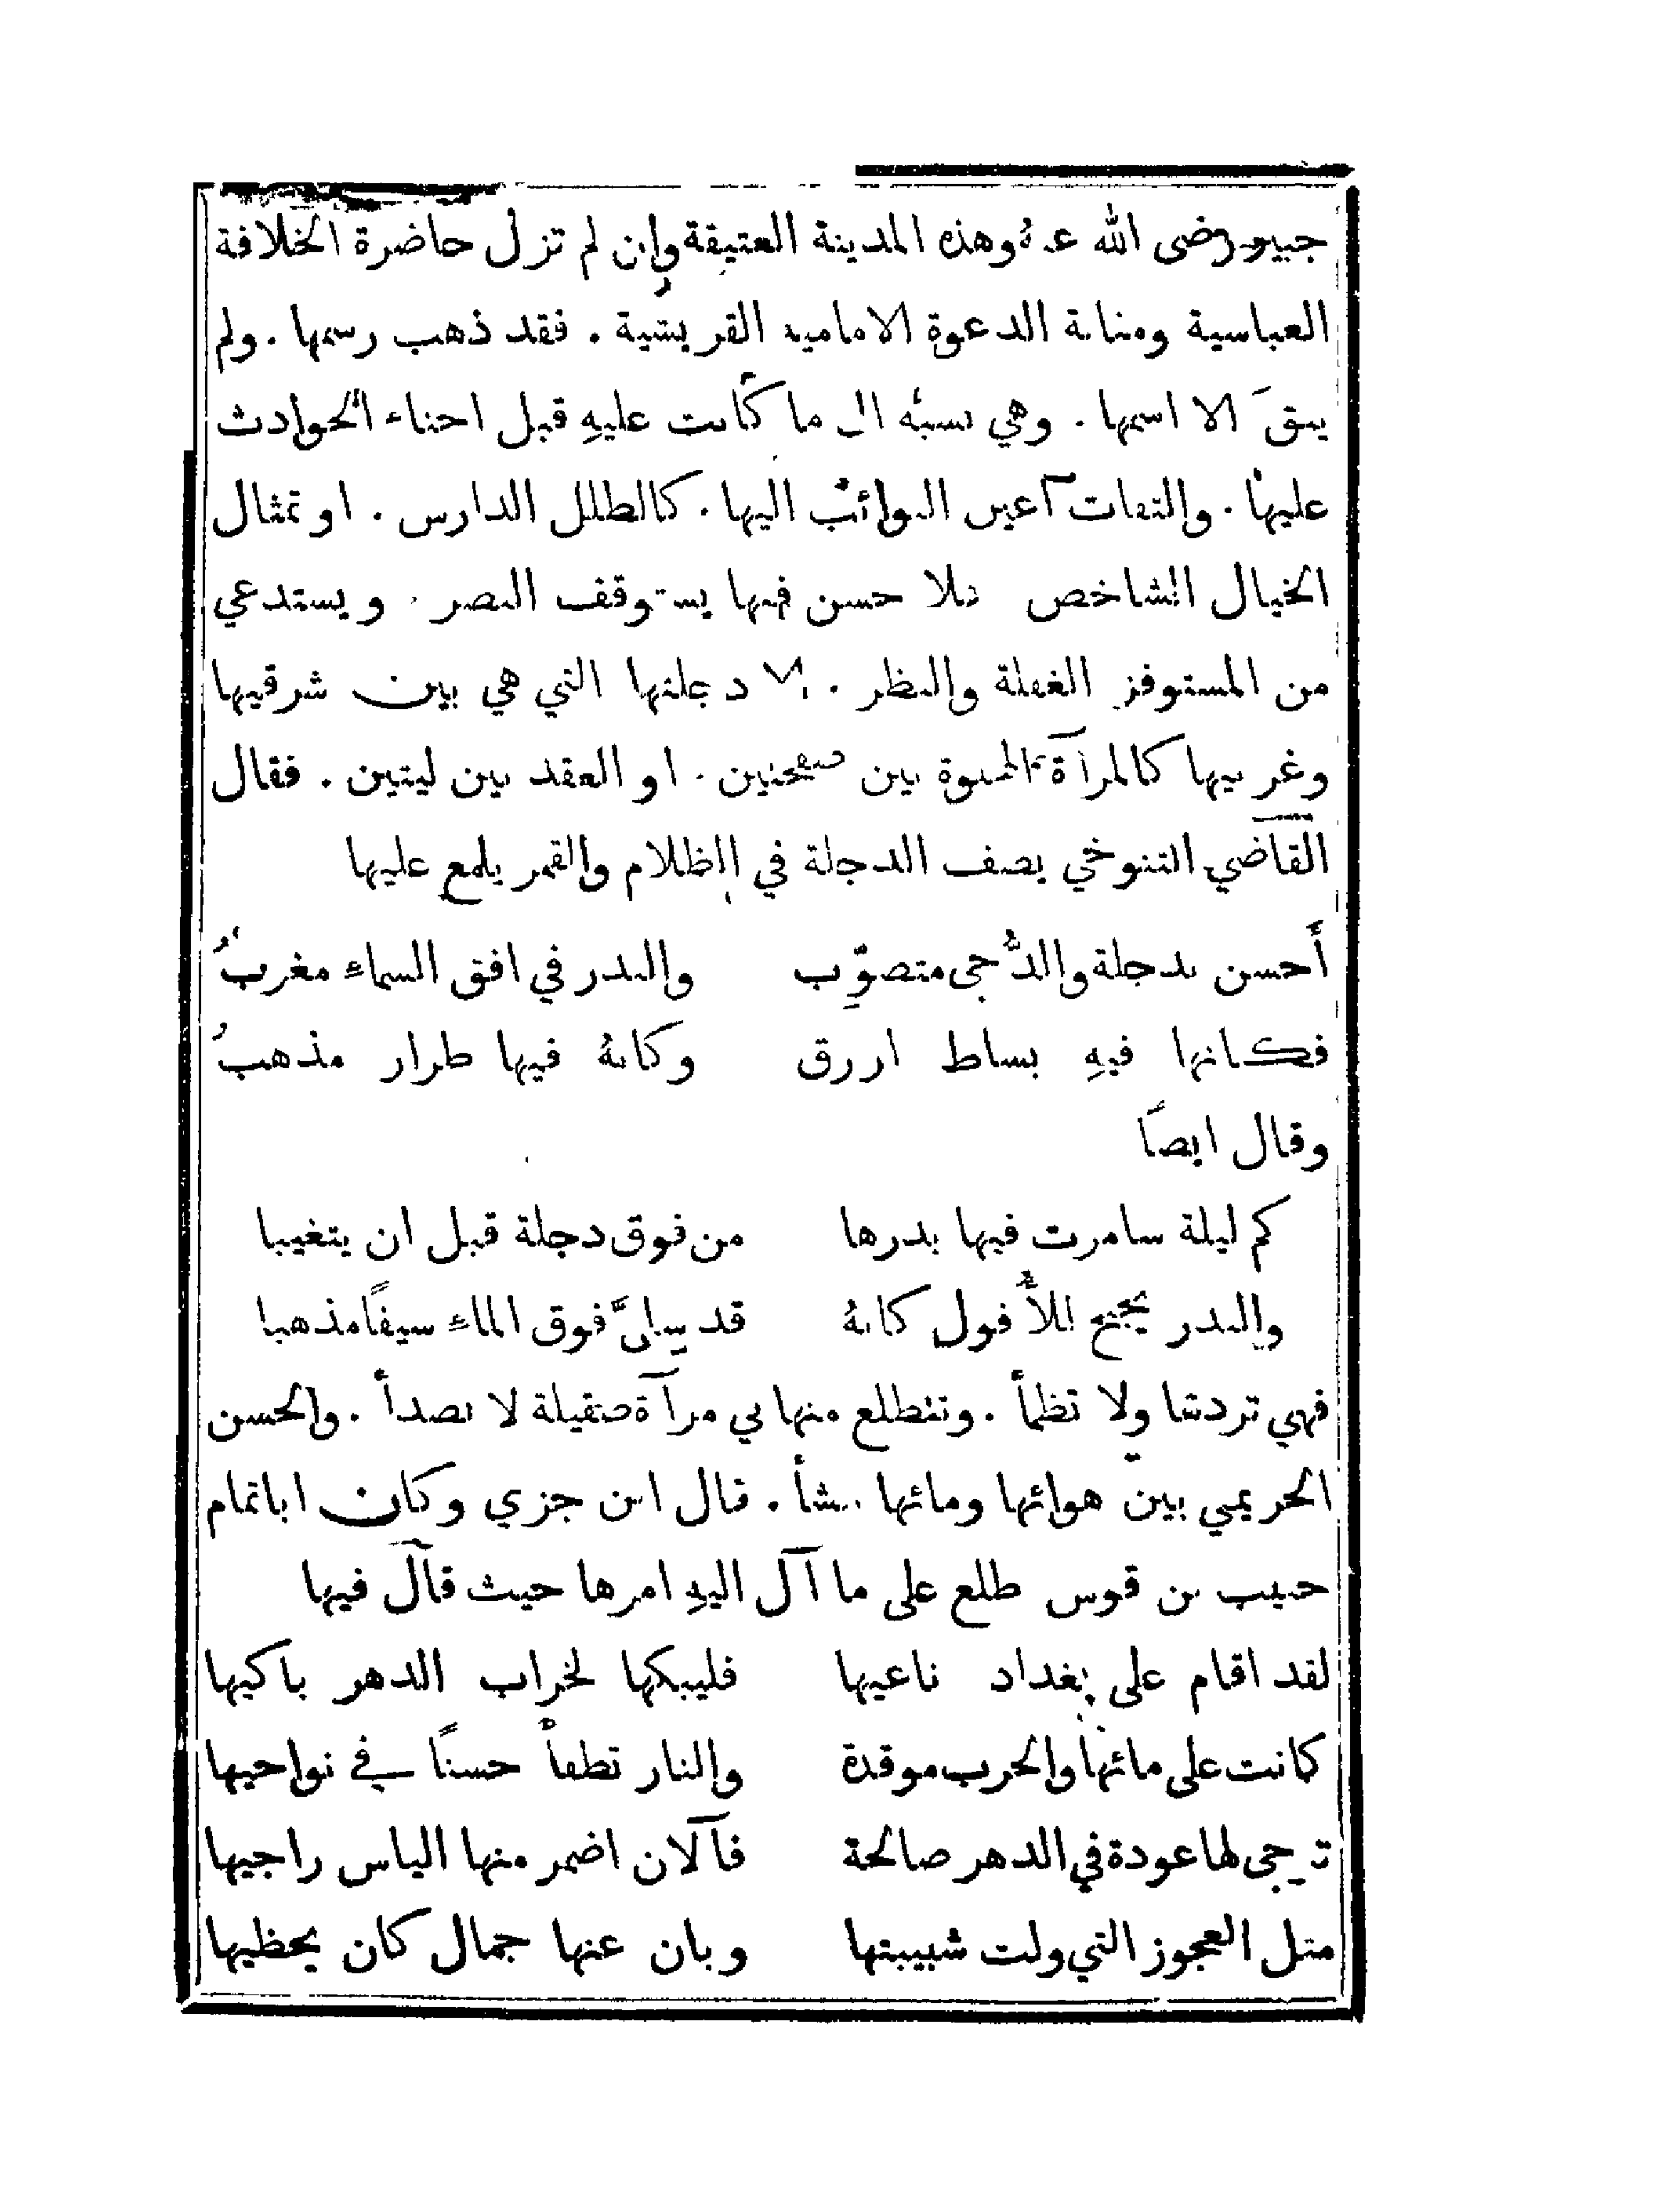 جبير رضى الله عنهُ وهذه المدينة العتيقة وان لم تزل حاضرة الخلافة
العباسية ومثابة الدعوة الامامية القريشية . فقد ذهب رسمها . ولم
يبقَ الا اسمها . وهي نسبة الى ما كانت عليهِ قبل احناء الحوادث
عليها . والتفات أعين النوائب اليها . كالطلل الدارس . او تمثال
الخيال الشاخص فلا حسن فيها يستوقف البصر . ويستدعي
من المستوفز الغفلة والنظر . الا دجلتها التي هي بين شرقيها
وغربيها كالمرآة المجلوة بين صفحتين . او العقد بين ليتين . فقال
القاضي التنوخي يصف الدجلة في الظلام والقمر يلمع عليها
أَحسن بدجلة والدُّجى متصوّب والبدر في افق السماء مغربُ
فكانها فيهِ بساط ازرق وكانهُ فيها طراز مذهبُ
وقال ايضًا
كم ليلة سامرت فيها بدرها من فوق دجلة قبل ان يتغيبا
والبدر يجنح للأُفول كانهُ قد سلَّ فوق الماء سيفًا مذهبا
فهي تردها ولا تظمأ . وتتطلع منها في مرآة صقيلة لا تصدأ . والحسن
الحريمي بين هوائها ومائها ينشأ . قال ابن جزي وكان اباتمام
حبيب بن قوس طلع على ما آل اليهِ امرها حيث قال فيها
لقد اقام على بغداد ناعيها فليبكها لخراب الدهر باكيها
كانت على مائها والحرب موقدة والنار تطفأ حسنًا في نواحيها
ترجى لها عودة في الدهر صالحة فآلان اضمر منها الياس راجيها
مثل العجوز التي ولت شبيبتها وبان عنها جمال كان يحظيها